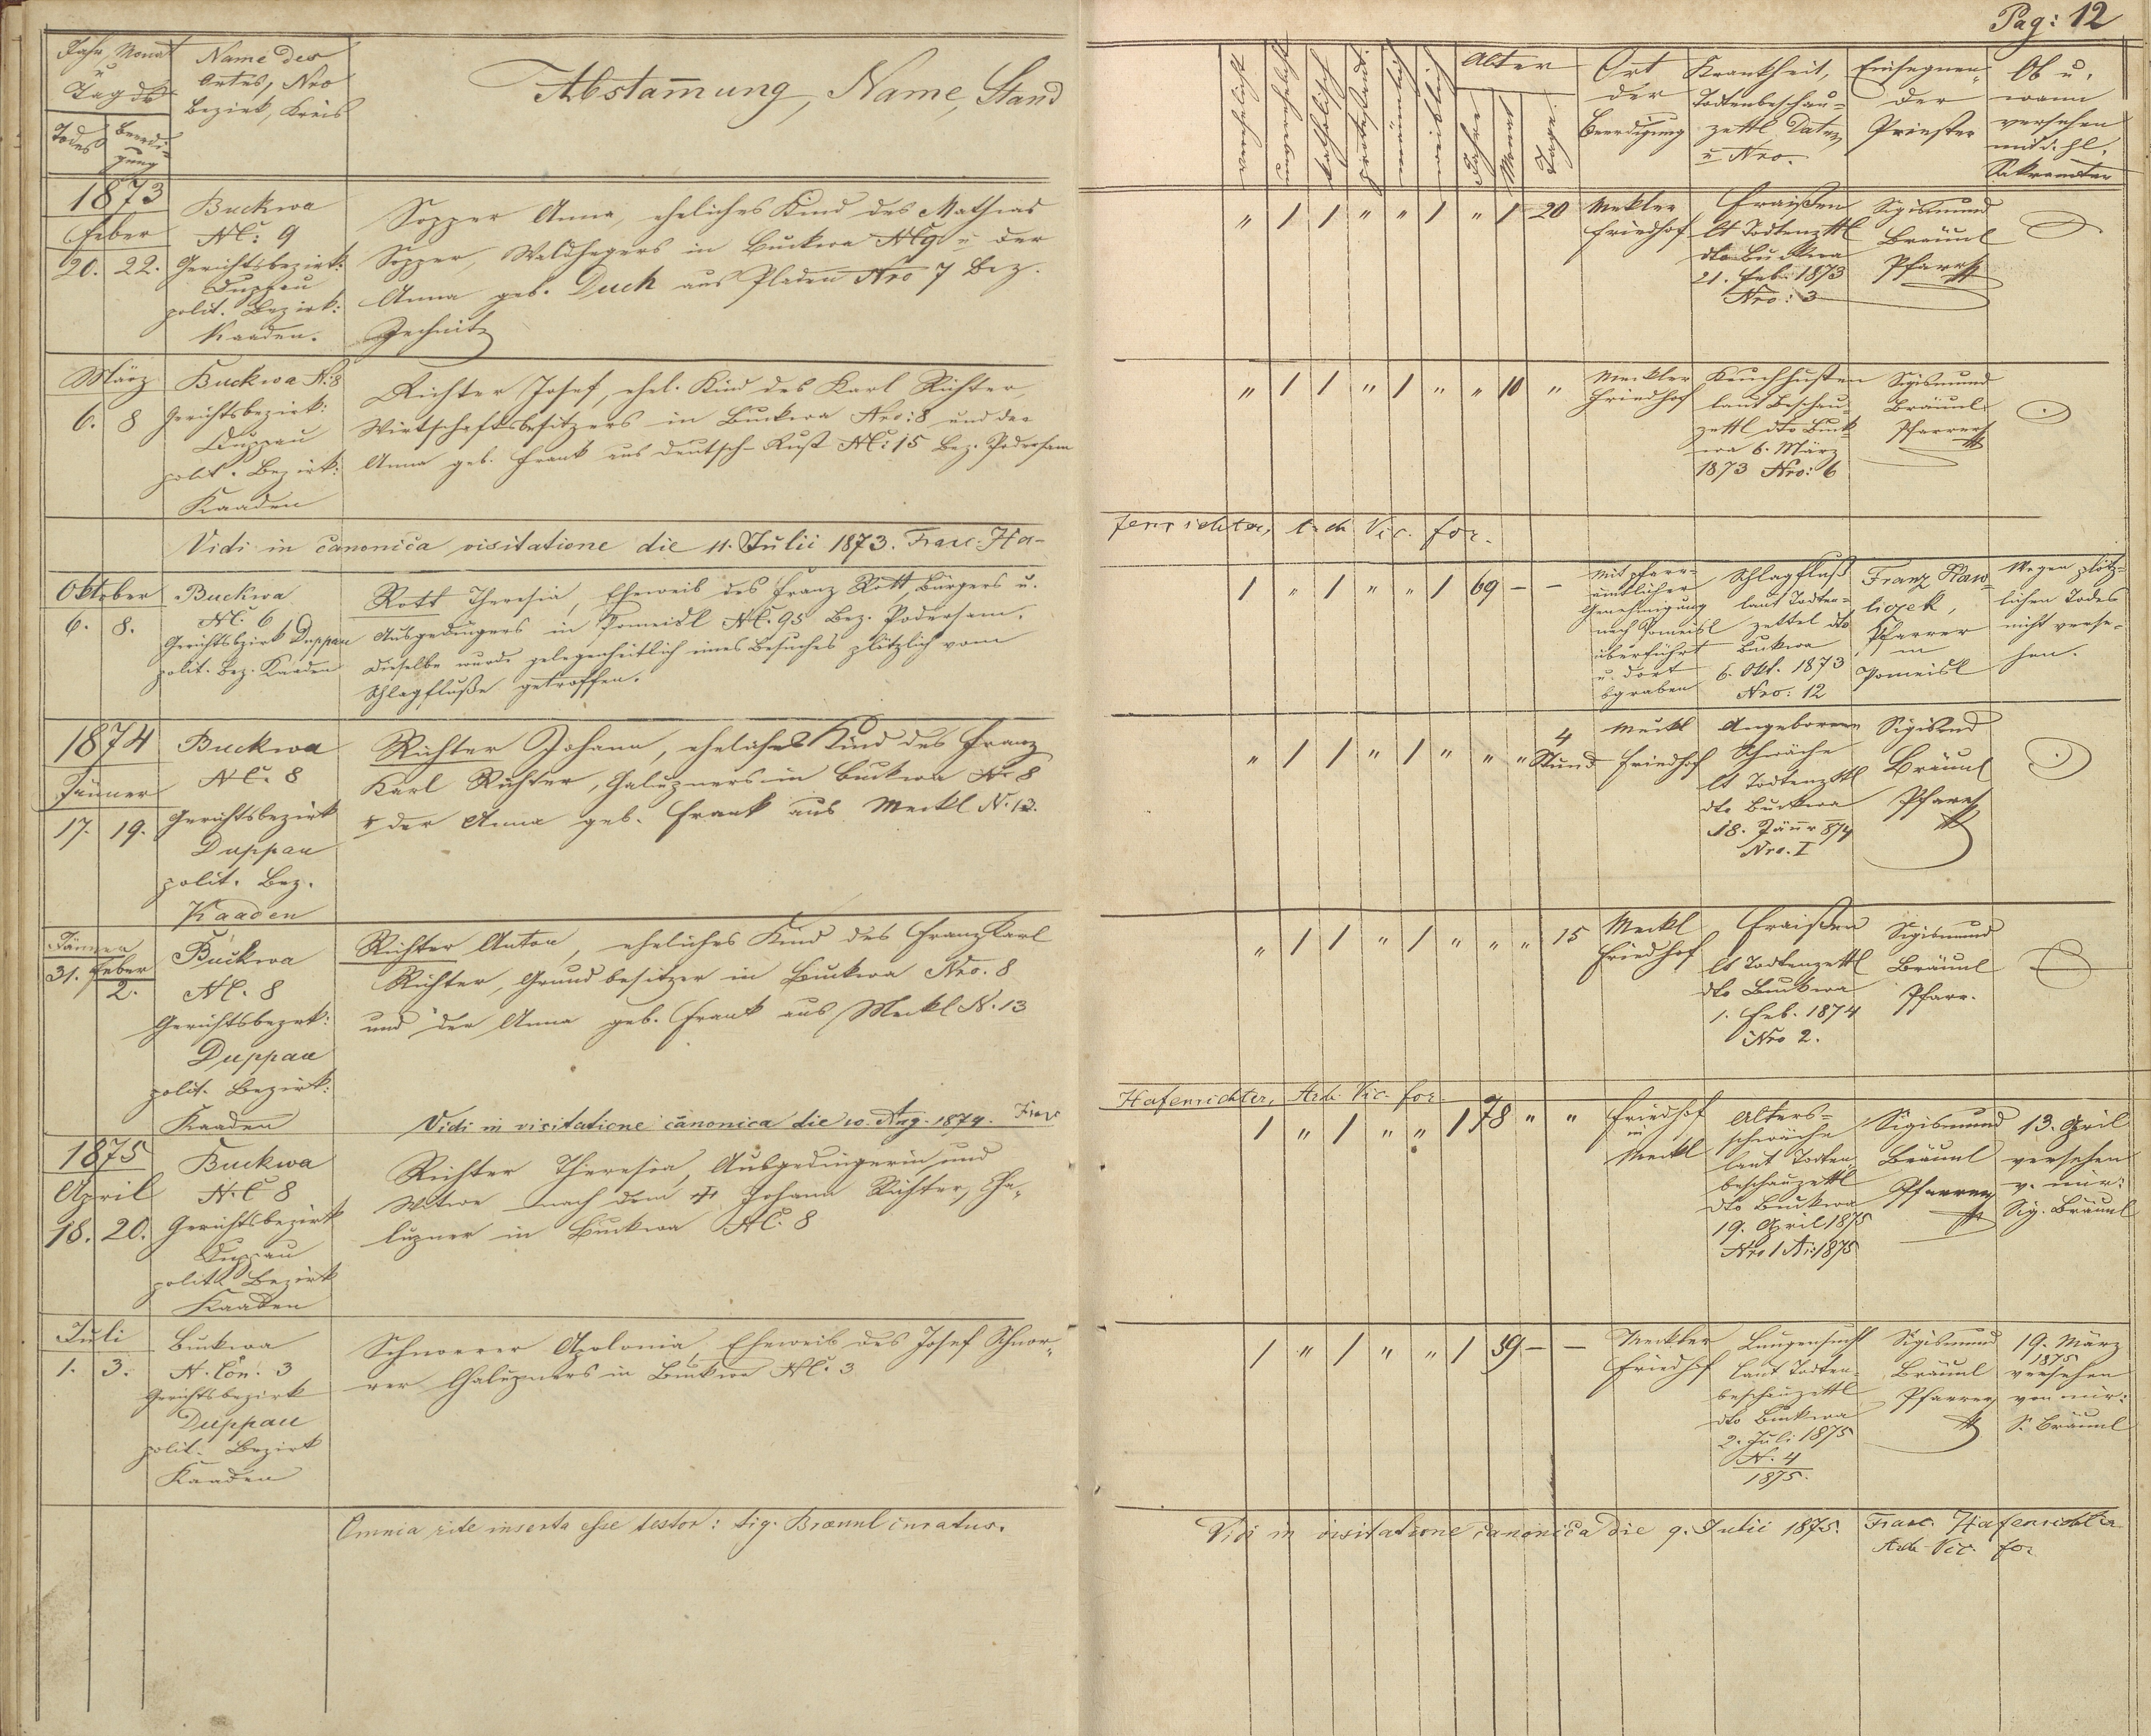 Pag: 12
Jahr, Monat
u
Tag der
Todes
Beerdi-
gung
Name des
Ortes, Nro
Bezirk, Kreis
Abstammung, Name, Stand
verehelicht
unverehelicht
katholisch
protestant.
männlich
weiblich
Alter
Jahre
Monat
Tage.
Ort
der
Beerdigung
Krankheit,
Todtenbeschau-
zettl Datum
u Nro.
Einsegnen-
der
Priester
Ob u.
wann
versehen
mit d. hl.
Sakramenten
1873
Feber
20. 22.
Buckwa
NC: 9
Gerichtsbezirk:
Duppau
polit. Bezirk:
Kaaden.
Sopper Anna, eheliches Kind des Mathias
Sopper, Waldhegers in Buckwa NC 9 u der
Anna geb. Duch aus Pladen Nro 7 Bez.
Jechnitz
" 1 1 " " 1 " 1 20
Mekler
Friedhof
Fraißen
lt Todtenzttl
dto Buckwa
21. Feb. 1873
Nro: 3
Sigismund
Bräunl
Pfarrer
März
6. 8
Buckwa N: 8
Gerichtsbezirk:
Duppau
polit. Bezirk:
Kaaden
Richter Josef, ehel. Kind des Karl Richter,
Wirtschaftsbesitzers in Buckwa Nro: 8 und der
Anna geb. Frank aus Deutsch-Rust NC: 15 Bez. Podersam
" 1 1 " 1 " " 10 "
Meckler
Friedhof
Keuchhusten
laut Beschau-
zettl dto Buck-
wa 6. März
1873 Nro: 6
Sigismund
Bräunl
Pfarrer
Vidi in canonica visitatione die 11. Julii 1873. Franc. Ha-
fenrichter, Vic. for.
Oktober
6. 8.
Buckwa
NC. 6
Gerichtsbezirk Duppau
polit. Bez. Kaaden
Rott Theresia, Eheweib des Franz Rott, Bürgers u.
Ausgedingers in Pomeisl NC. 95 Bez. Podersam.
Dieselbe wurde gelegenheitlich eines Besuches plötzlich vom
Schlagfluße getroffen.
1 " 1 " " 1 69 – –
Mit pfarr-
ämtlicher
Genehmigung
nach Pomeisl
überführt
u. dort
bgraben
Schlagfluß
laut Todten-
zettel dto
Buckwa
6. Okt. 1873
Nro: 12
Franz Haw-
liczek,
Pfarrer
in
Pomeisl
Wegen plötz-
lichen Todes
nicht verse-
hen.
1874
Jänner
17. 19.
Buckwa
NC. 8
Gerichtsbezirk
Duppau
polit. Bez.
Kaaden
Richter Johann, eheliches Kind des Franz
Karl Richter, Chaluzners in Buckwa Nr 8
u der Anna geb. Frank aus Meckl N. 13.
" 1 1 " 1 " " " 4
Stund
Meckl
Friedhof
Angeborene
Schwäche
lt Todtenzttl
dto Buckwa
18. Jänr 874
Nro. I
Sigismd
Bräunl
Pfarrer
Jänner
31. Feber
2.
Buckwa
NC. 8
Gerichtsbezrk:
Duppau
polit. Bezirk:
Kaaden
Richter Anton, eheliches Kind des Franz Karl
Richter, Grundbesitzer in Buckwa Nro. 8
und der Anna geb. Frank aus Meckl N. 13
" 1 1 " 1 " " " 15
Meckl
Friedhof
Fraißen
lt Todtenzettl
dto Buckwa
1. Feb. 1874
Nro 2.
Sigismund
Bräunl
Pfarr.
Vidi in visitatione canonica die 10. Aug. 1874. Franc
Hafenrichter, Vic. for.
1875
April
18. 20.
Buckwa
N.C 8
Gerichtsbezirk
Duppau
polit. Bezirk
Kaaden
Richter Theresia, Ausgedingerin und
Witwe nach dem † Johann Richter, Cha-
luzner in Buckwa NC. 8
1 " 1 " " 1 78 " "
Friedhof
in
Meckl
Alters-
schwäche
laut Todten-
beschauzettl
dto Buckwa
19. April 1875
Nro 1 Ai: 1875
Sigismund
Bräunl
Pfarrer
13. April
versehen
v. mir:
Sig. Bräunl
Juli
1. 3.
Buckwa
N. Con. 3
Gerichtsbezirk
Duppau
polit. Bezirk
Kaaden
Schnorrer Apolonia, Eheweib des Josef Schnor-
rer Chaluzners in Buckwa NC. 3
1 " 1 " " 1 39 – –
Meckler
Friedhof
Lungensucht
laut Todten-
beschauzettl
dto Buckwa
2. Juli 1875
N. 4
1875.
Sigismund
Bräunl
Pfarrer
19. März
1875
versehen
von mir:
S. Bräunl
Omnia rite inserta esse testor: Sig. Braeunl curatus.
Vidi in visitatione canonica die 9. Julii 1875. Franc. Hafenrichter
Vic. for